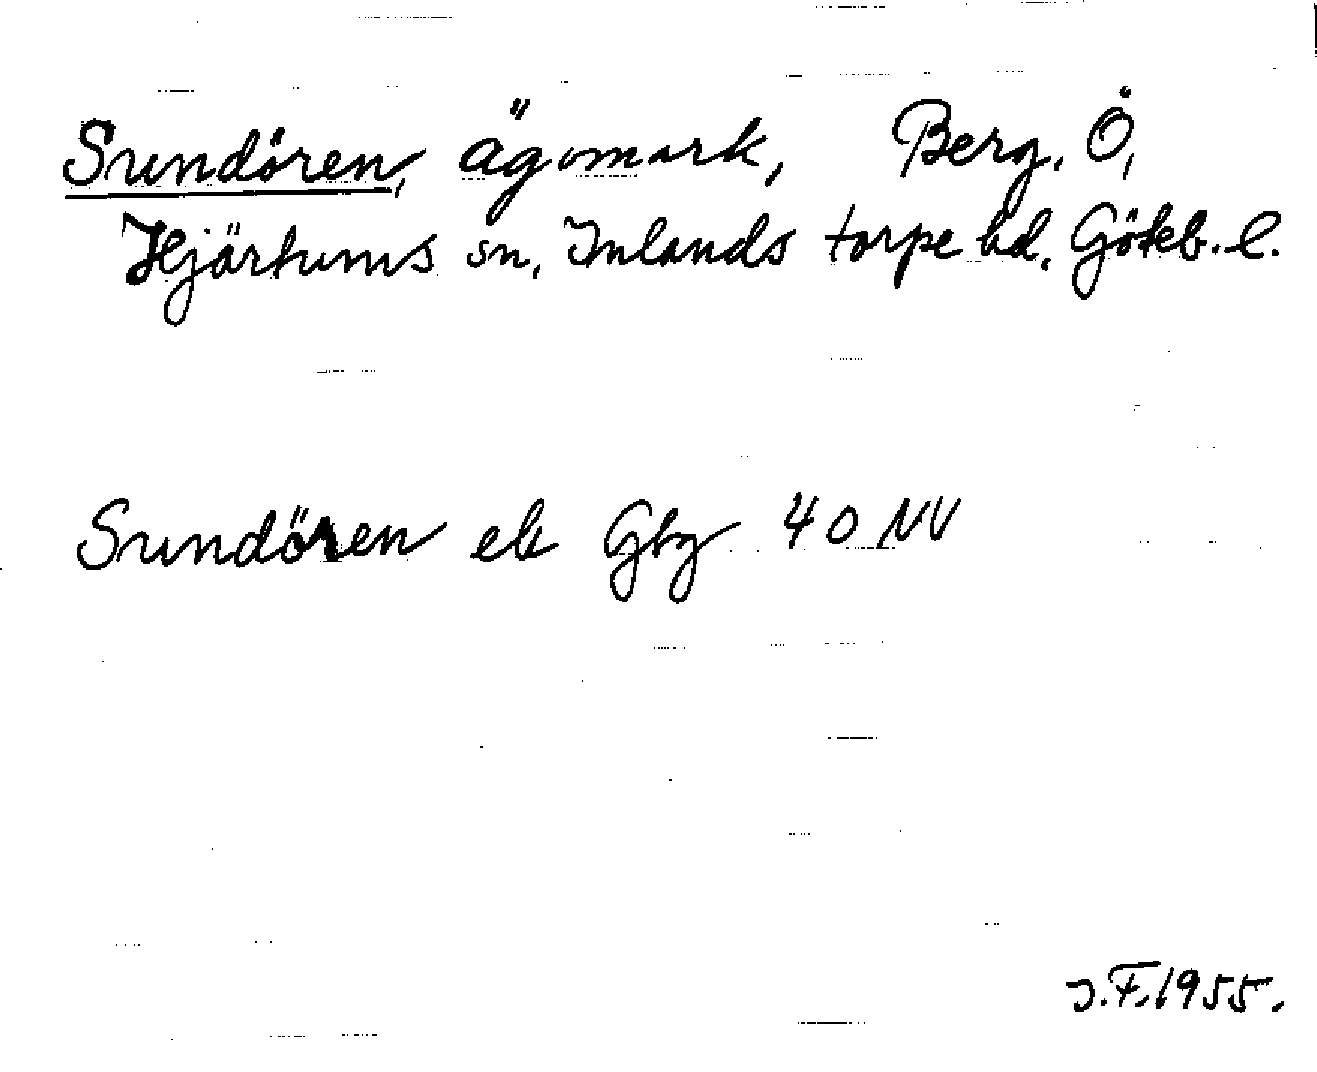 Sundören, ägomark, Berg. Ö,
Hjärtums sn, Inlands torpe hd. Göteb. l.
Sundören ek Gbg 40 NV
J.F. 1955.